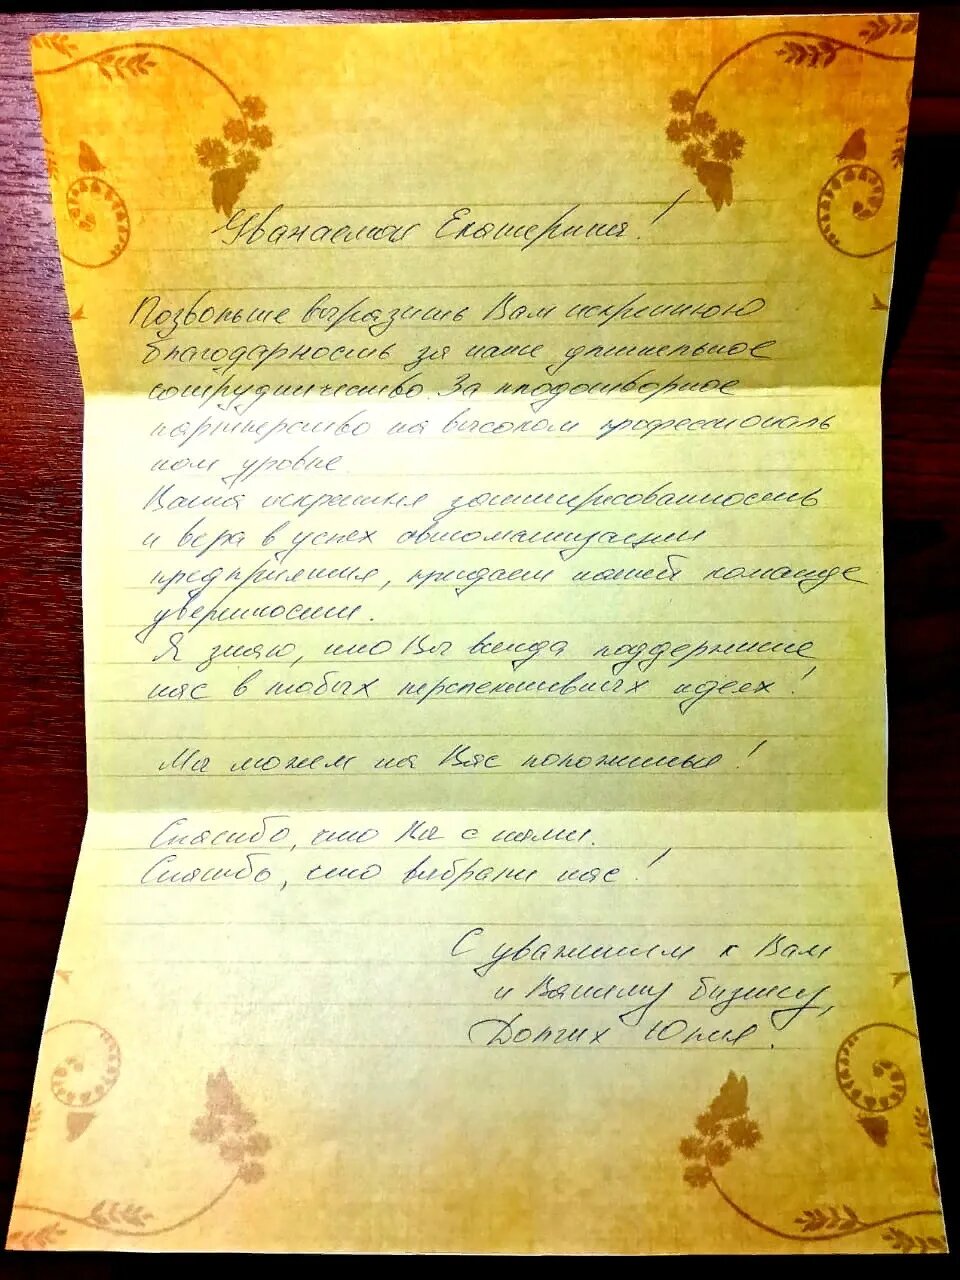 Уважаемая Екатерина!
Позвольте выразить Вам искреннюю
благодарность за наше длительное
сотрудничество. За плодотворное
партнерство на высоком профессиональ
ном уровне.
Ваша искренняя заинтересованность
и вера в успех автоматизации
предприятия, придает нашей команде
уверенности.
Я знаю, что Вы всегда поддержите
нас в любых перспективных идеях!
Мы можем на Вас положиться!
Спасибо, что Вы с нами.
Спасибо, что выбрали нас!
С уважением к Вам
и Вашему бизнесу,
Долгих Юлия.